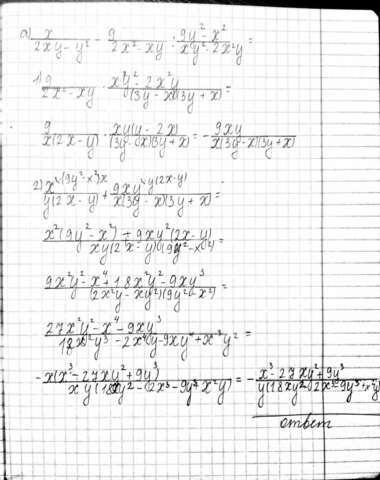 а) x/(2xy-y²) - 9/(2x²-xy) : (9y²-x²)/(xy²-2x²y) =
1) 9/(2x²-xy) · (xy²-2x²y)/((3y-x)(3y+x)) =
9/(x(2x-y)) · (xy(y-2x))/((3y-x)(3y+x)) = -9xy/(x(3y-x)(3y+x))
2) x^{·(9y²-x²)x}/(y(2x-y)) + 9xy^{·y(2x-y)}/(x(3y-x)(3y+x)) =
(x²(9y²-x²)+9xy²(2x-y))/(xy(2x-y)(9y²-x²)) =
(9x²y²-x⁴+18x²y²-9xy³)/((2x²y-xy²)(9y²-x²)) =
(27x²y²-x⁴-9xy³)/(18x²y³-2x⁴y-9xy⁴+x³y²) =
-x(x³-27xy²+9y³)/(xy(18xy²-2x³-9y³+x²y)) = -(x³-27xy²+9y³)/(y(18xy²-2x³-9y³+x²y))
ответ